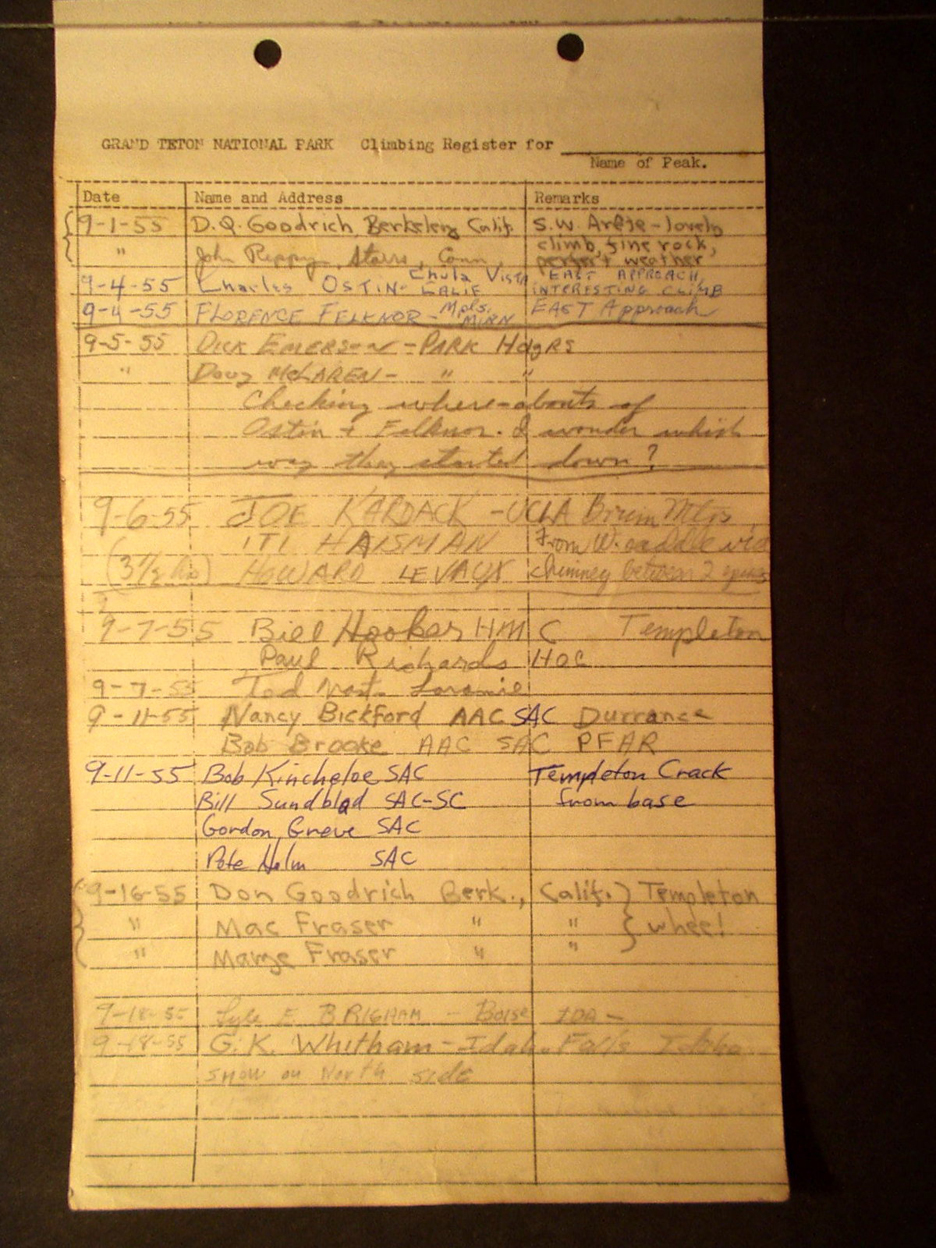 GRAND TETON NATIONAL PARK Climbing Register for
Name of Peak.
Date Name and Address Remarks
9-1-55 D.Q. Goodrich, Berkeley Calif. S.W. Arête - lovely
" John Reppy, Storrs, Conn. climb, fine rock,
perfect weather
9-4-55 Charles OSTIN - Chula Vista CALIF EAST APPROACH, INTERESTING CLIMB
9-4-55 FLORENCE FELKNOR - Mpls. MINN EAST Approach
9-5-55 DICK EMERSON - PARK HdqRS
" Doug McLAREN - " "
Checking where-abouts of
Ostin + Felknor. I wonder which
way they started down?
9-6-55 JOE KARDACK - UCLA Bruin Mtrs
HAISMAN From W. saddle via
(3 1/2 hrs) HOWARD LEVAUX chimney between 2
9-7-55 Bill Hooker HMC Templeton
Paul Richards HOC
9-7-55 Laramie
9-11-55 Nancy Bickford AAC SAC Durrance
Bob Brooke AAC SAC PFAR
9-11-55 Bob Kincheloe SAC Templeton Crack
Bill Sundblad SAC-SC from base
Gordon Greve SAC
Pete Helm SAC
9-16-55 Don Goodrich Berk., Calif. } Templeton
" Mac Fraser " " } whee!
" Marge Fraser " "
9-18-55 Lyle E BRIGHAM - BOISE IDA -
9-18-55 G.K. Whitham - Idaho Falls Idaho
snow on North side